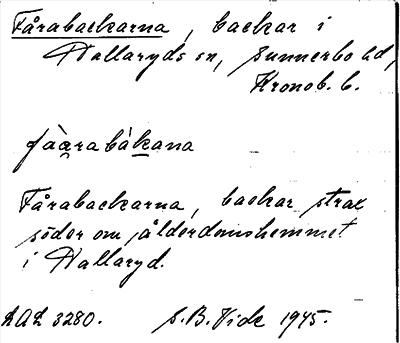 Fårabackarna, backar i
Hallaryds sn, Sunnerbo hd,
Kronob. l.
fàa̰rabàk̲ana
Fårabackarna, backar strax
söder om ålderdomshemmet
i Hallaryd.
LAL 3280. S.B.Vide 1945.